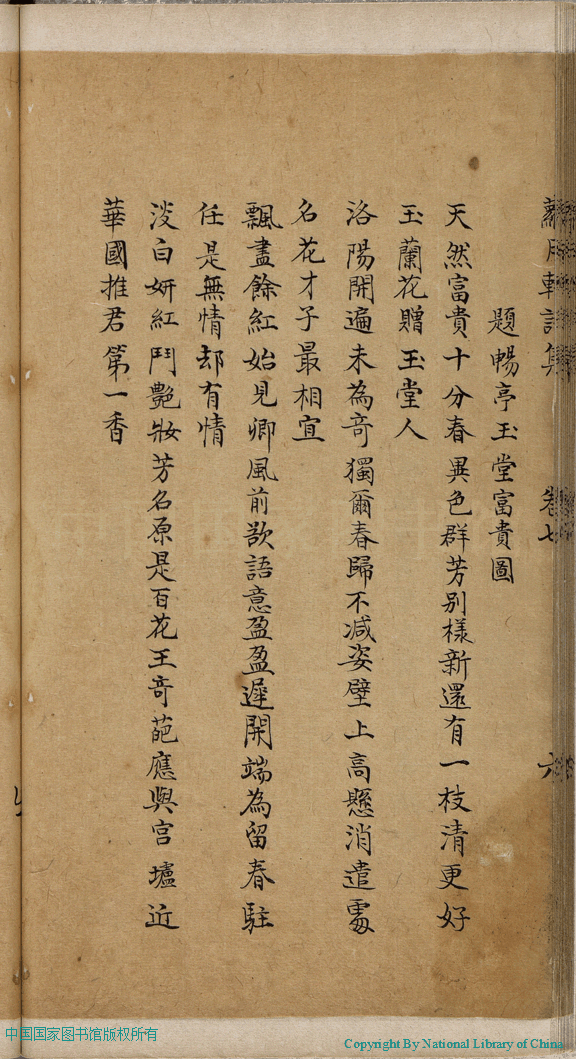 月軒詩集 卷七 六
題暢亭玉堂富貴圖
天然富貴十分春異色群芳别樣新還有一枝清更好
玉蘭花贈玉堂人
洛陽開遍未為竒獨爾春歸不减姿壁上高懸消遣處
名花才子最相宜
飄盡餘紅始見卿風前欲語意盈盈遲開端為留春駐
任是無情却有情
淡白妍紅鬥艷妝芳名原是百花王竒葩應與宮壚近
華國推君第一香
中国国家图书馆版权所有
Copyright By National Library of China